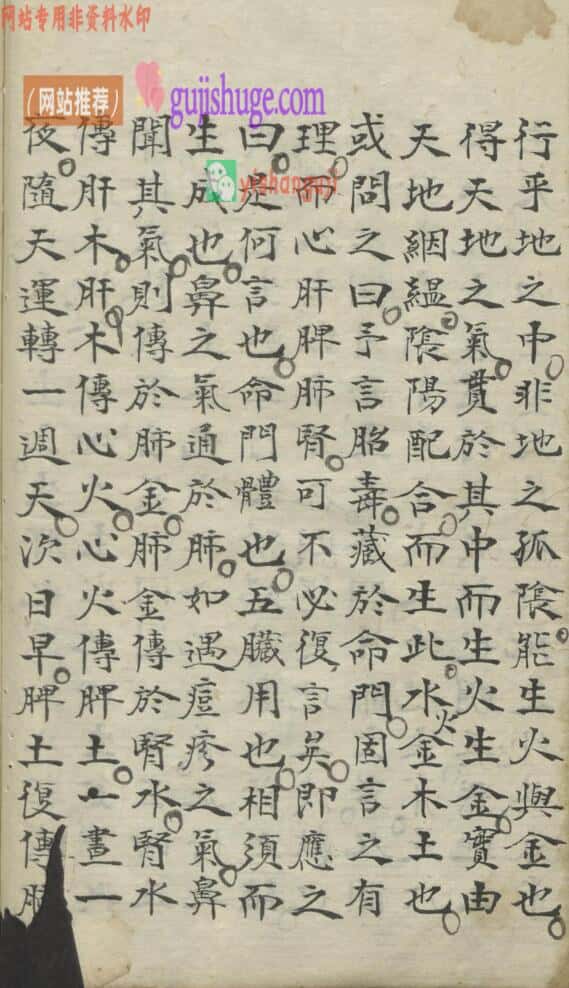 网站专用非资料水印
(网站推荐)
gujishuge.com
行乎地之中非地之孤陰能生火與金也
得天地之氣貫於其中而生火生金實由
天地絪縕陰陽配合而生此水火金木土也
或問之曰予言胎毒藏於命門固言之有
理而心肝脾肺腎可不必復言矣即應之
曰是何言也命門體也五臟用也相須而
生成也鼻之氣通於肺如遇痘疹之氣鼻
聞其氣則傳於肺金肺金傳於腎水腎水
傳肝木肝木傳心火心火傳脾土一晝一
夜隨天運轉一週天次日早脾土復傳